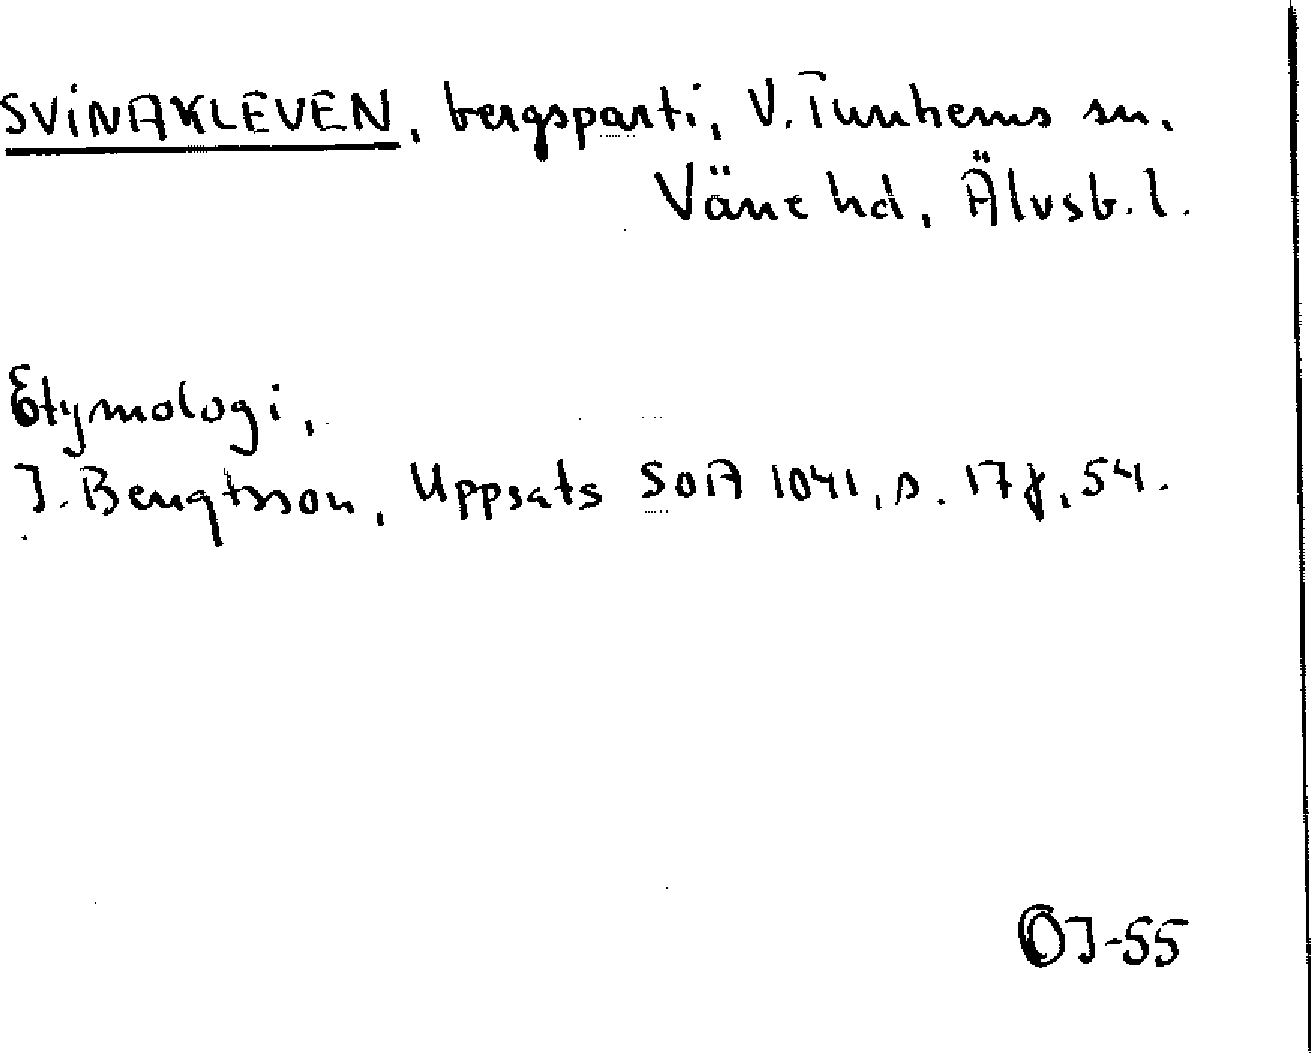 SVINAKLEVEN, bergsparti, V. Tunhems sn.
Väne hd, Älvsb. l.
Etymologi,
J. Bengtsson, Uppsats SOA 1041, s. 17f, 54.
OJ-55